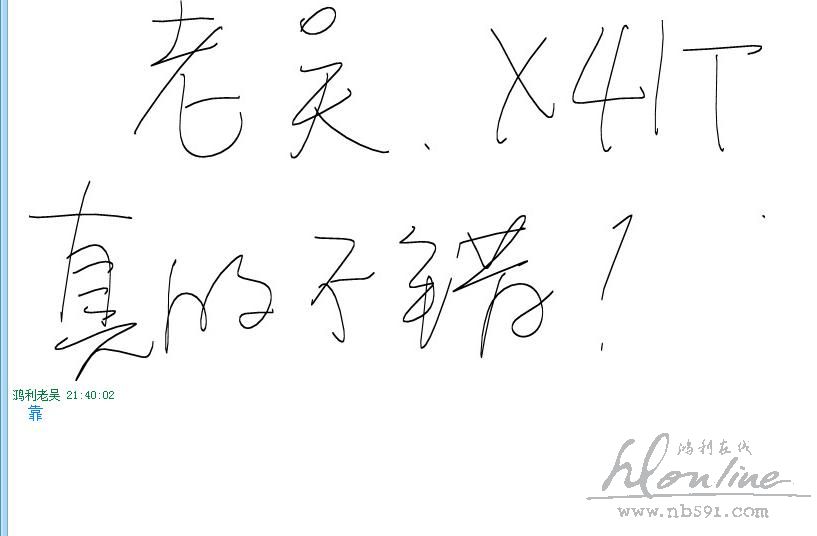 老吴、X41T
真的不错！
鸿利老吴 21:40:02
靠
鸿利在线
hlonline
www.nb591.com